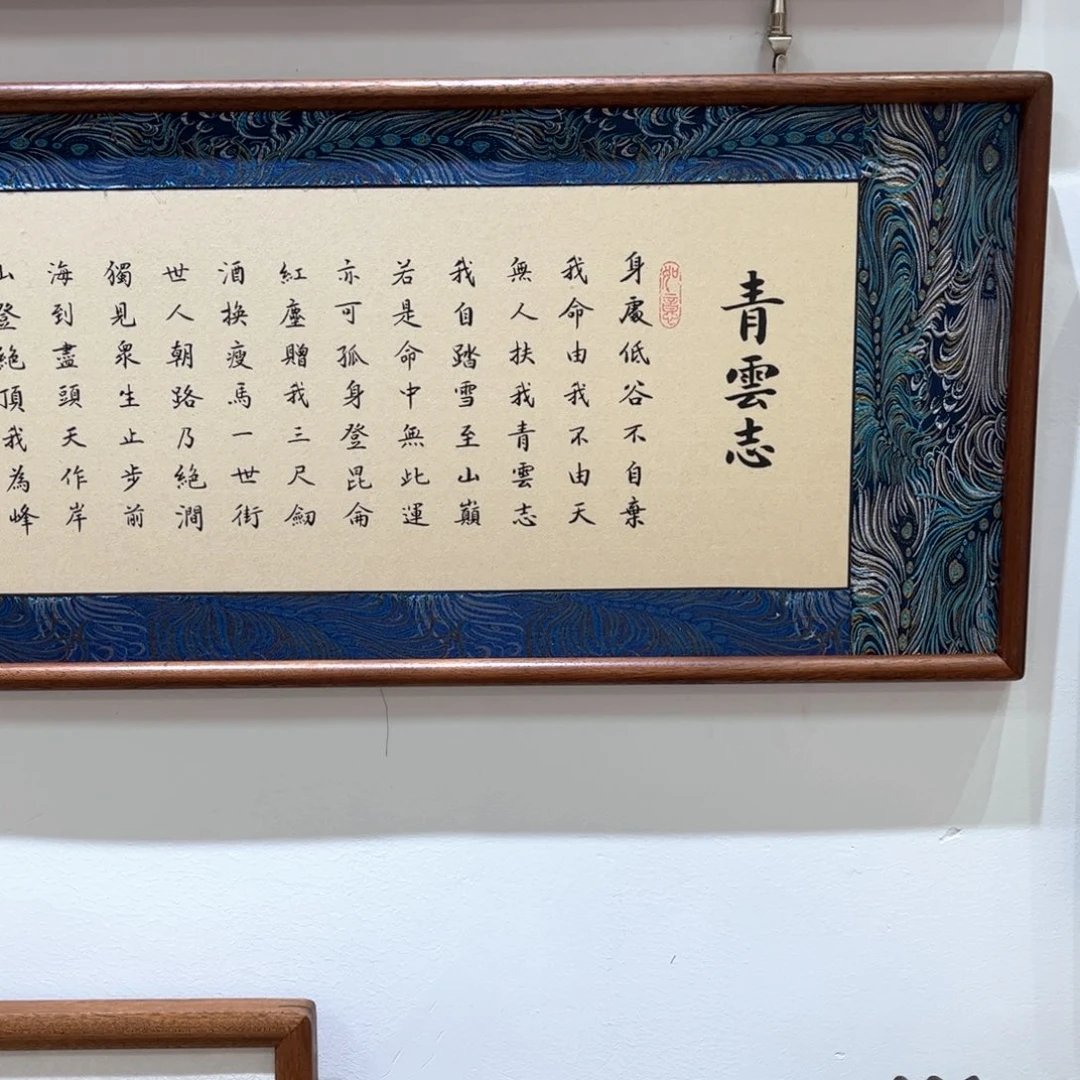 青雲志
如意
身處低谷不自棄
我命由我不由天
無人扶我青雲志
我自踏雪至山巔
若是命中無此運
亦可孤身登昆侖
紅塵贈我三尺劒
酒換瘦馬一世街
世人朝路乃絕澗
獨見眾生止步前
海到盡頭天作岸
山登絕頂我為峰